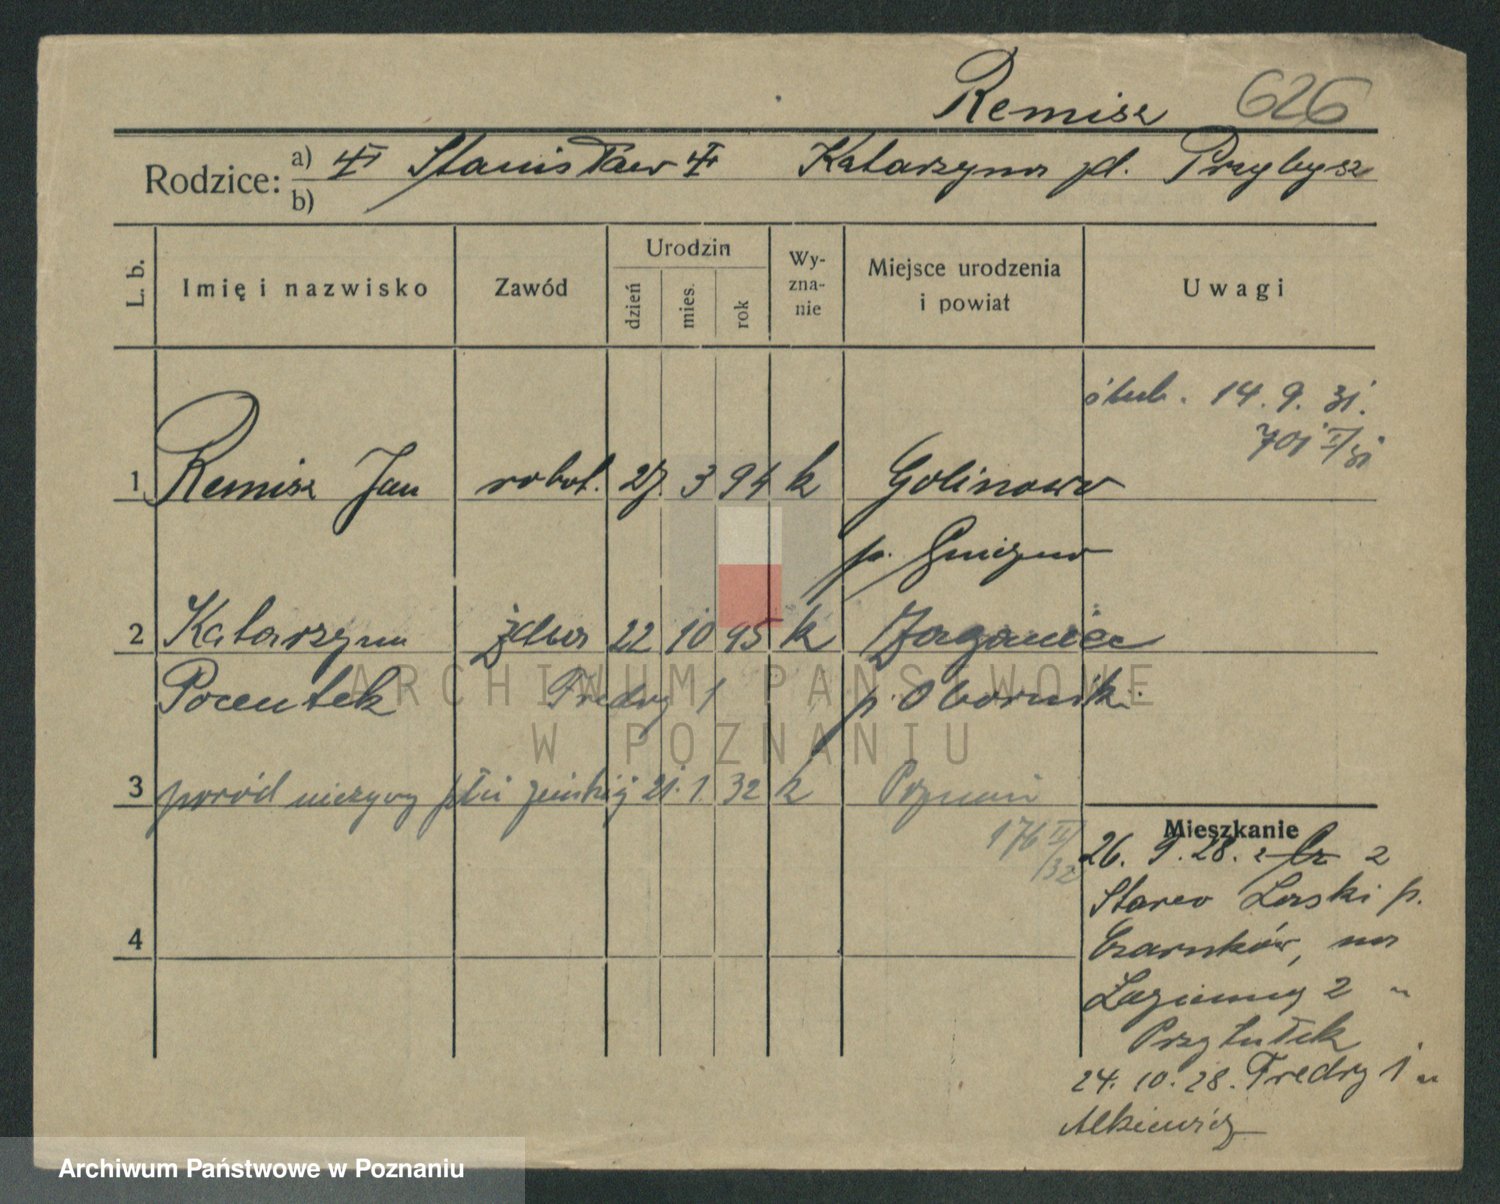 Remisz 626
Rodzice: a) Stanisław Katarzyna zd. Przybysz
b)
L. b. Imię i nazwisko Zawód Urodzin dzień mies. rok Wy-zna-nie Miejsce urodzenia i powiat Uwagi
ślub. 14. 9. 31.
701 II/31
1 Remisz Jan robot. 27. 3 94 k Golinowo
p. Gniezno
2 Katarzyna żona 22 10 95 k
Pocentek Fredry 1 p. Oborniki
3 poród nieżywy płci żeńskiej 21. 1. 32 k Poznań
176 II/32
4
Mieszkanie
26. 9. 28. z 2
p.
Czarnków, na
Łazienny 2 u
Przytułek
24. 10. 28. Fredry 1 u
Alkiewicz
ARCHIWUM PAŃSTWOWE
W POZNANIU
Archiwum Państwowe w Poznaniu